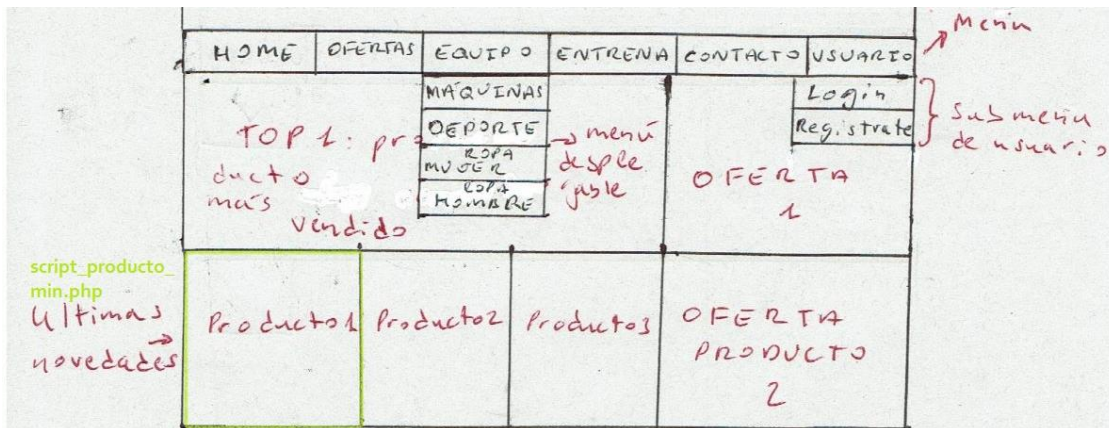 Menu
HOME OFERTAS EQUIPO ENTRENA CONTACTO USUARIO
MÁQUINAS
DEPORTE
ROPA
MUJER
ROPA
HOMBRE
→ menú
desple
gable
Login
Registrate
Submenu
de usuario
TOP 1: pro
ducto
más
vendido
OFERTA
1
script_producto_
min.php
Ultimas
novedades
Producto1 Producto2 Producto3
OFERTA
PRODUCTO
2